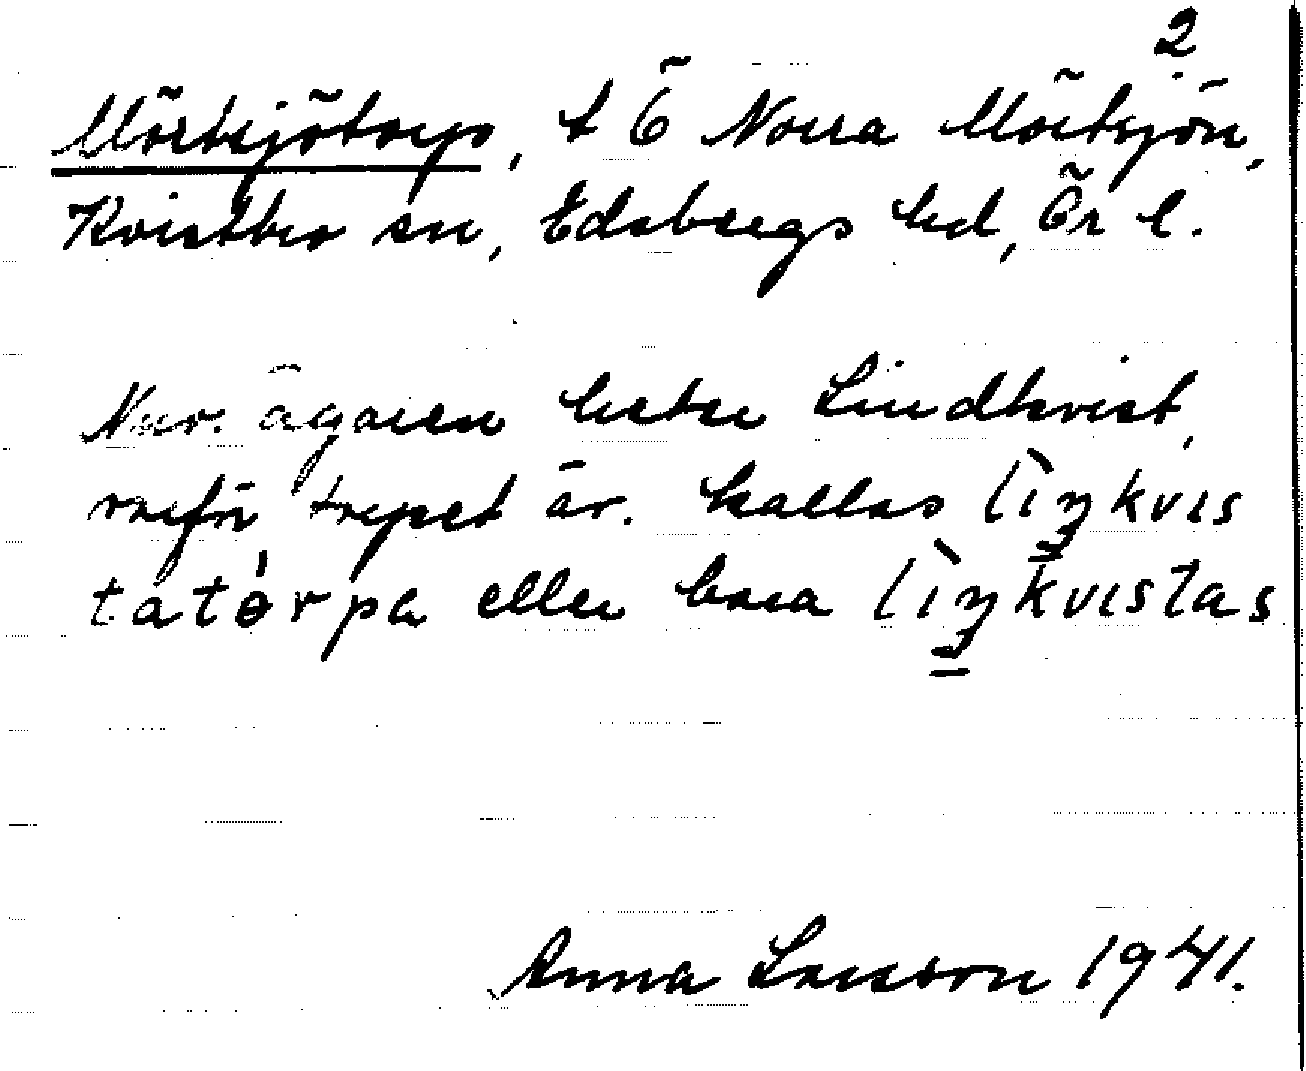 2
Mörtsjötorp, t Ö Norra Mörtsjön,
Kvistbro sn, Edsbergs hd, Ör l.
Nuv. ägaren heter Lindkvist,
varför torpet äv. kallas lìŋkvɪs
tatórpa eller bara lìŋkvɪstas
Anna Larsson 1941.